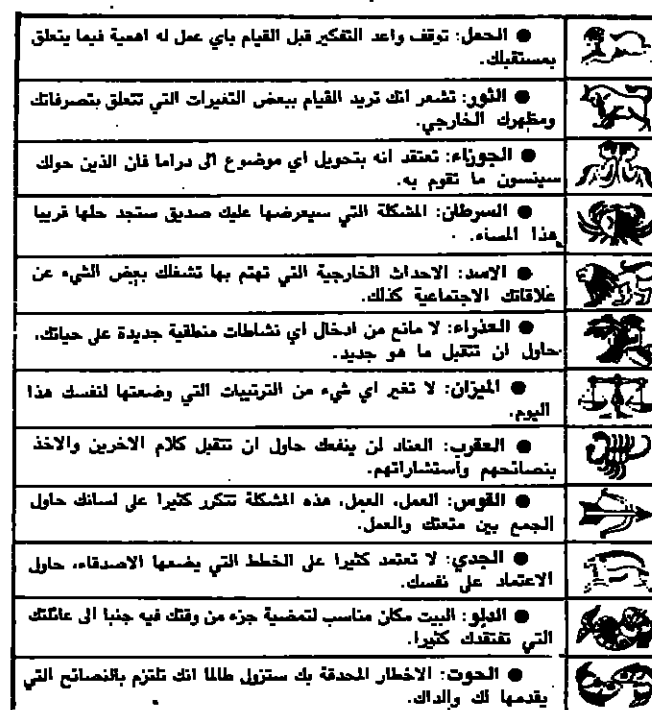 ● الحمل: توقف واعد التفكير قبل القيام باي عمل له اهمية فيما يتعلق
بمستقبلك.
● الثور: تشعر انك تريد القيام ببعض التغيرات التي تتعلق بتصرفاتك
ومظهرك الخارجي.
● الجوزاء: تعتقد انه بتحويل اي موضوع الى دراما فان الذين حولك
سينسون ما تقوم به.
● السرطان: المشكلة التي سيعرضها عليك صديق ستجد حلها قريبا
هذا المساء.
● الاسد: الاحداث الخارجية التي تهتم بها تشغلك بعض الشيء عن
علاقاتك الاجتماعية كذلك.
● العذراء: لا مانع من ادخال اي نشاطات منطقية جديدة على حياتك،
حاول ان تتقبل ما هو جديد.
● الميزان: لا تغير اي شيء من الترتيبات التي وضعتها لنفسك هذا
اليوم.
● العقرب: العناد لن ينفعك حاول ان تتقبل كلام الاخرين والاخذ
بنصائحهم وأستشاراتهم.
● القوس: العمل، العمل، هذه المشكلة تتكرر كثيرا على لسانك حاول
الجمع بين متعتك والعمل.
● الجدي: لا تعتمد كثيرا على الخطط التي يضعها الاصدقاء، حاول
الاعتماد على نفسك.
● الدلو: البيت مكان مناسب لتمضية جزء من وقتك فيه جنبا الى عائلتك
التي تفتقدك كثيرا.
● الحوت: الاخطار المحدقة بك ستزول طالما انك تلتزم بالنصائح التي
يقدمها لك والداك.